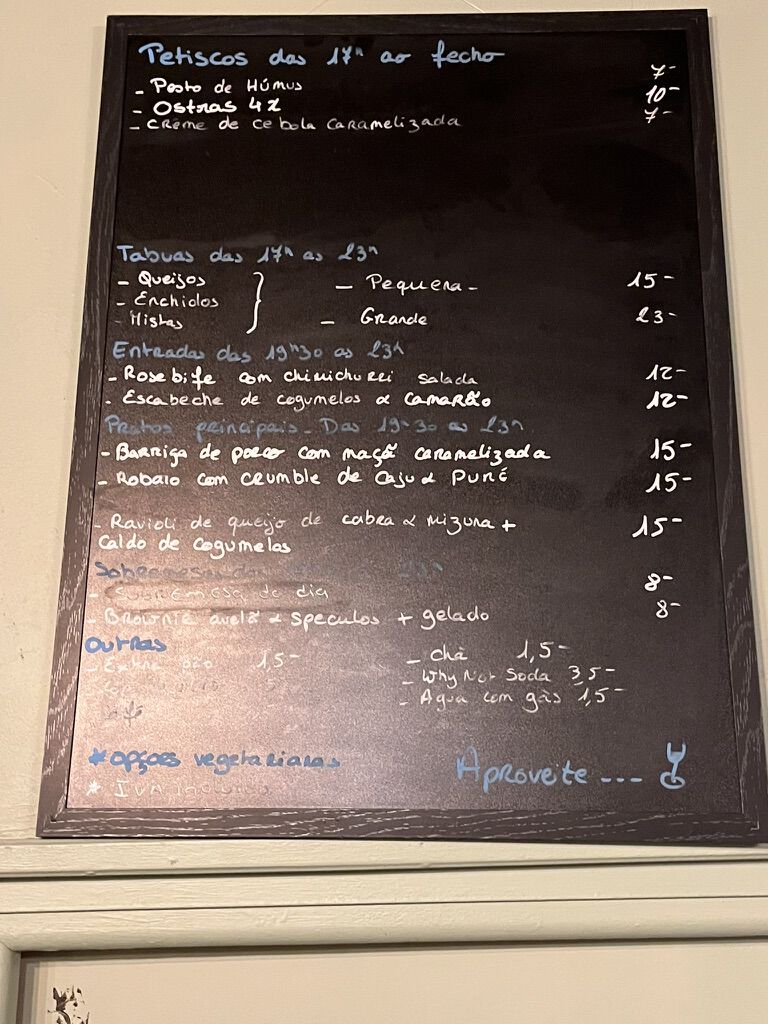 Petiscos das 17h ao fecho
- Pasto de Húmus 7-
- Ostras 4x 10-
- Crème de cebola caramelizada 7-
Tabuas das 17h as 23h
- Queijos
- Enchidos
- Mistas
- Pequena - 15-
- Grande 23-
Entradas das 19h30 as 23h
- Rosebife com chimichurri salada 12-
- Escabeche de cogumelos & camarão 12-
Pratos principais - Das 19h30 as 23h
- Barriga de porco com maçã caramelizada 15-
- Robalo com crumble de caju & puré 15-
- Ravioli de queijo de cabra & mizuna + 15-
caldo de cogumelos
23h
- Sobremesa do dia 8-
- Brownie avelã & speculos + gelado 8-
Outras
- Extra pão 1,5-
- Chà 1,5-
- Why Not Soda 3,5-
- Agua com gàs 1,5-
* opçoes vegetarianas
* IVA incluso
Aproveite ---